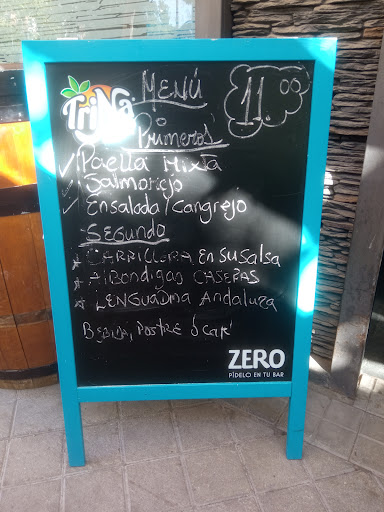 TriNa
MENÚ
11.00
Primeros
Paella Mixta
Salmorejo
Ensalada/Cangrejo
SEGUNDO
CARRILLERA EN SU SALSA
AlBondigas CASERAS
LENGUADINA Andaluza
BEBIDA, POSTRE Ó CAFÉ
ZERO
PÍDELO EN TU BAR